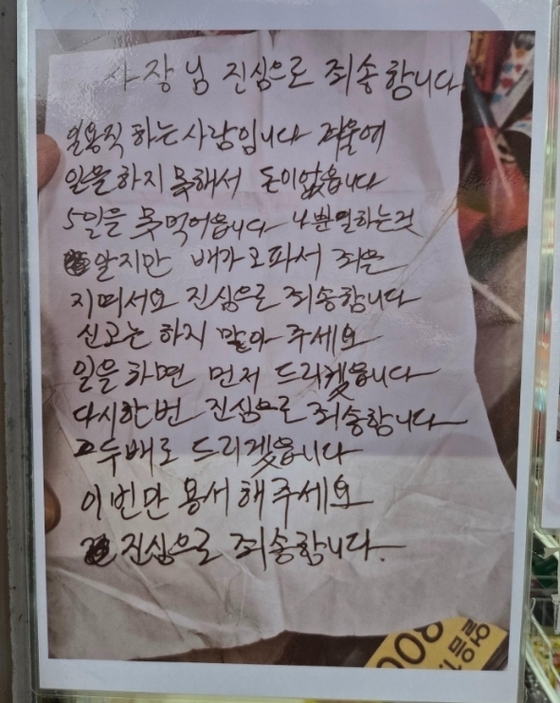 사장님 진심으로 죄송합니다
일용직 하는 사람입니다 겨울에
일을 하지 못해서 돈이 없읍니다
5일을 못 먹어읍니다 나쁜일하는것
알지만 배가 오파서 죄은
지며서요 진심으로 죄송합니다
신고는 하지 말아 주세요
일을 하면 먼저 드리겠읍니다
다시한번 진심으로 죄송합니다
두배로 드리겠읍니다
이번만 용서 해주세요
진심으로 죄송합니다.